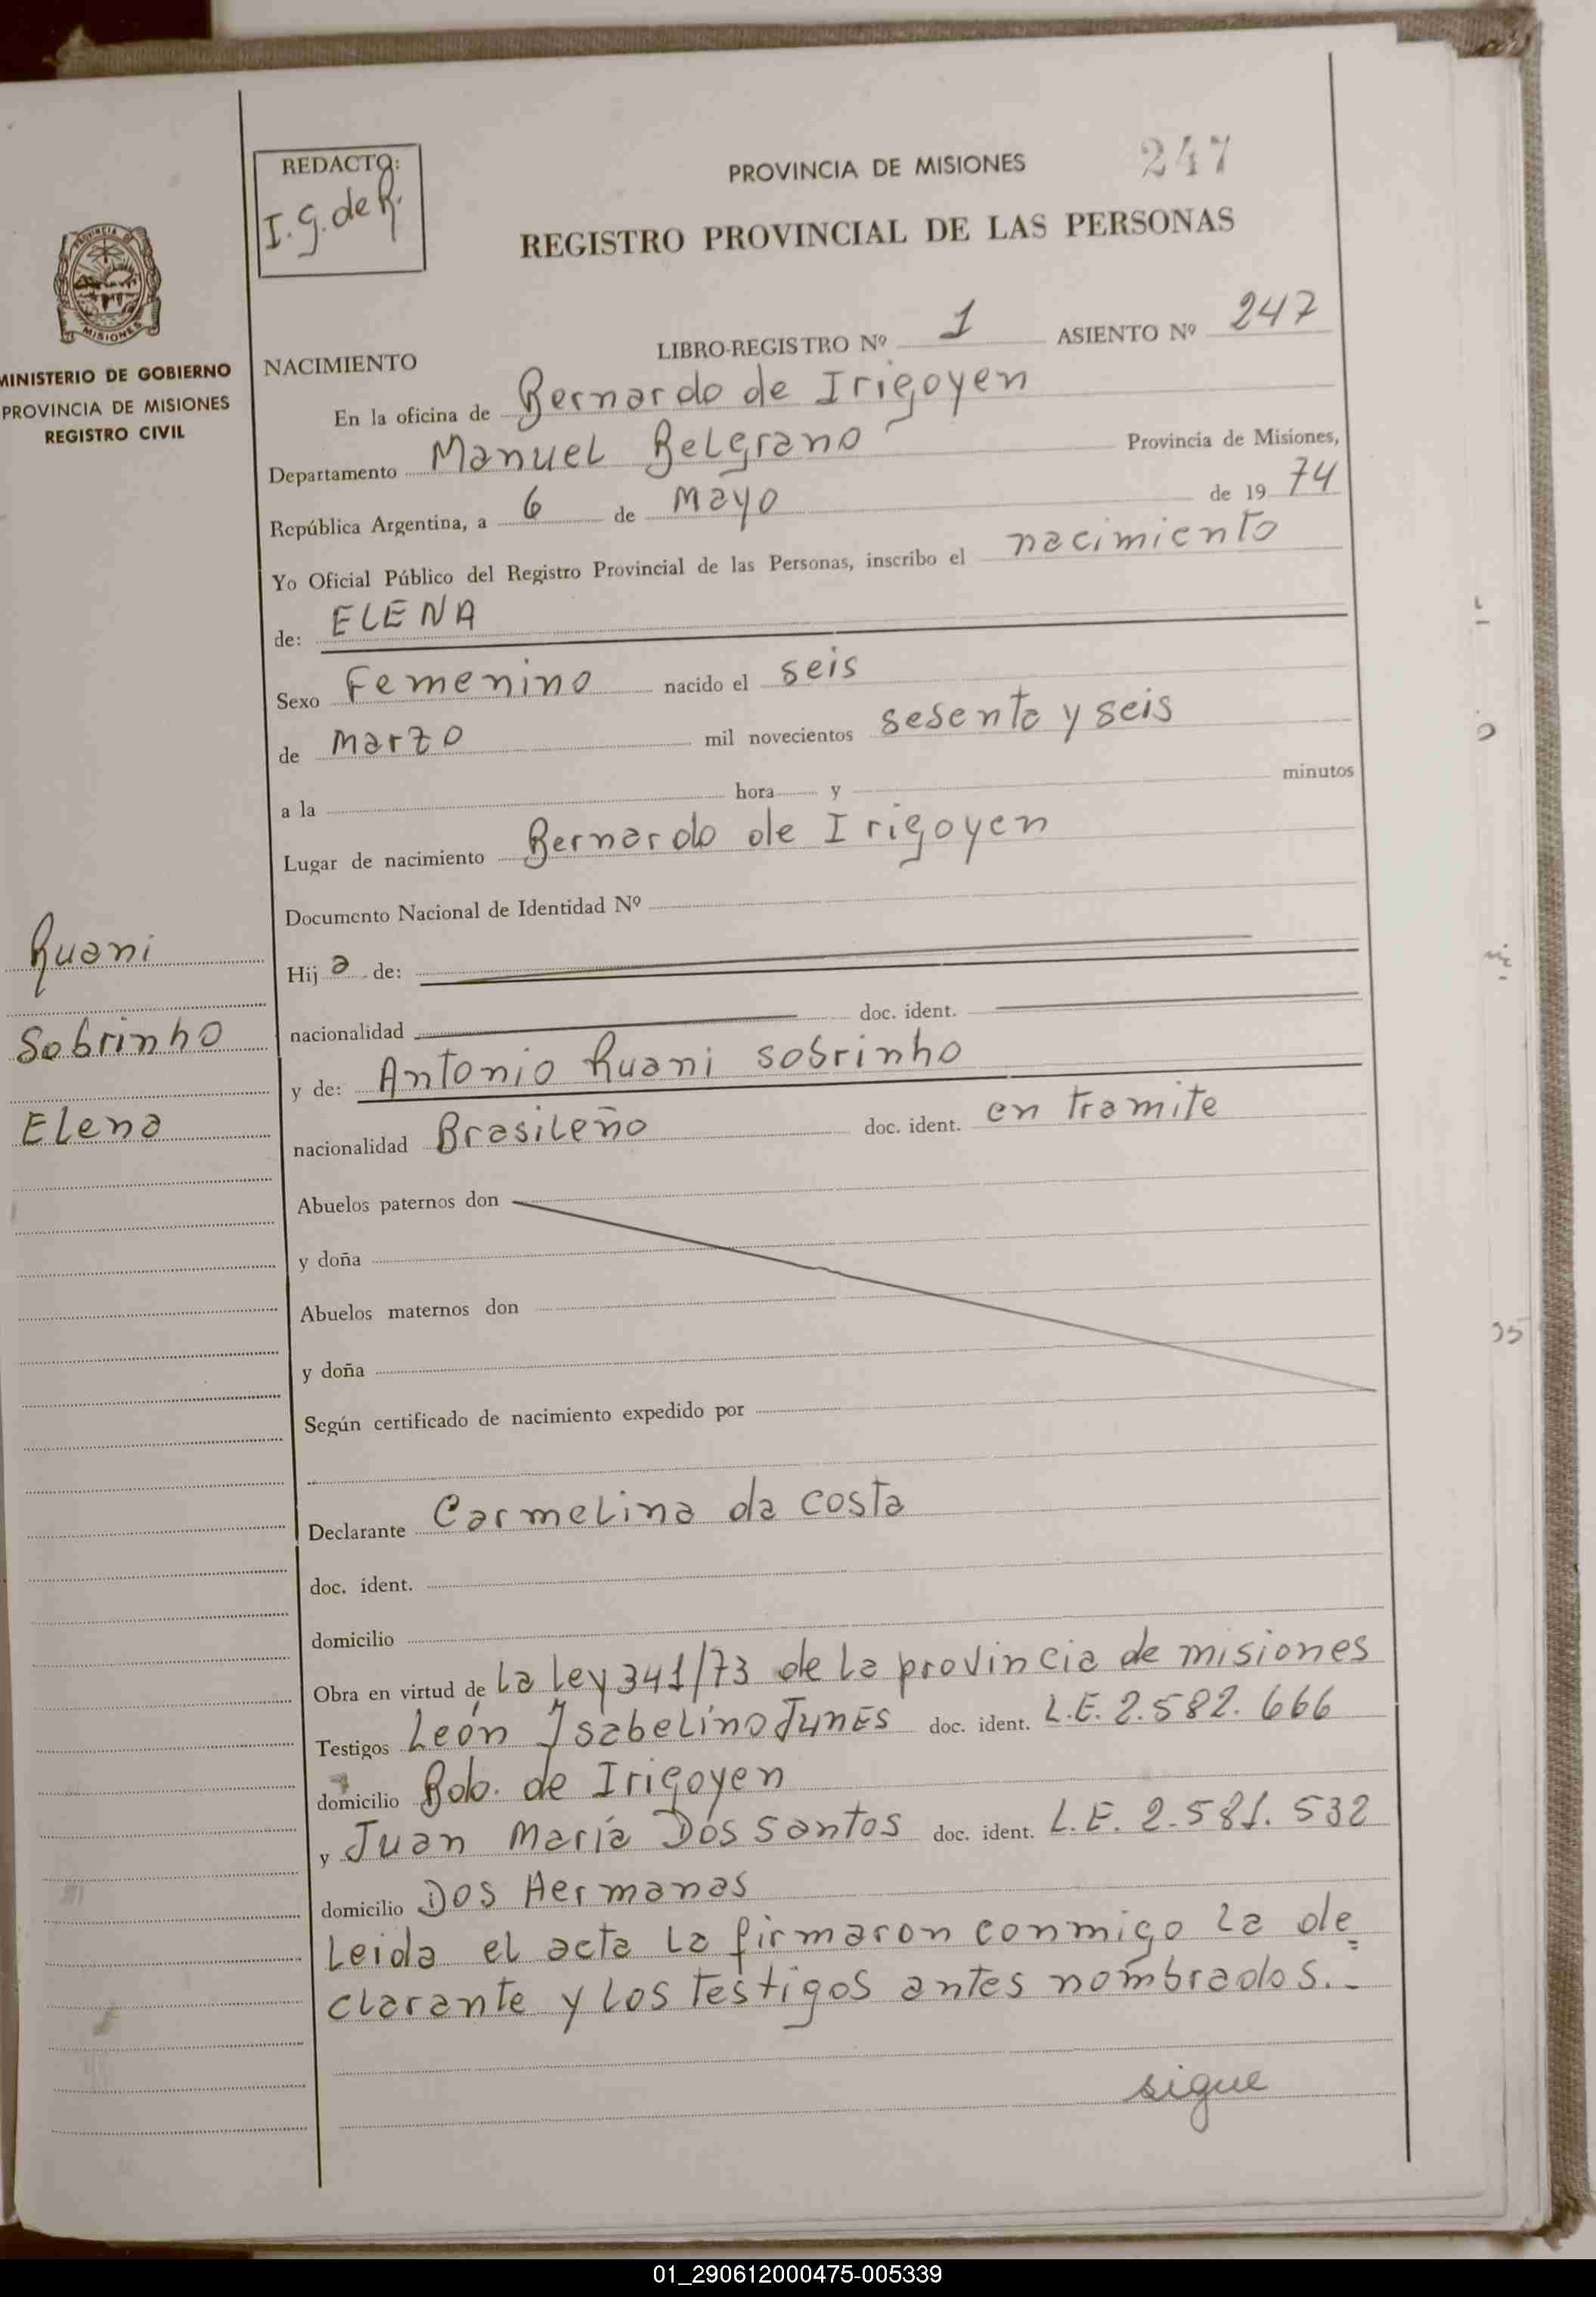 REDACTO:
I. G. de R.
PROVINCIA DE MISIONES
247
REGISTRO PROVINCIAL DE LAS PERSONAS
PROVINCIA DE
MISIONES
MINISTERIO DE GOBIERNO
PROVINCIA DE MISIONES
REGISTRO CIVIL
NACIMIENTO LIBRO-REGISTRO Nº 1 ASIENTO Nº 247
En la oficina de Bernardo de Irigoyen
Departamento Manuel Belgrano Provincia de Misiones,
República Argentina, a 6 de Mayo de 19 74
Yo Oficial Público del Registro Provincial de las Personas, inscribo el nacimiento
de: ELENA
Sexo Femenino nacido el seis
de marzo mil novecientos sesenta y seis
a la hora y minutos
Lugar de nacimiento Bernardo de Irigoyen
Documento Nacional de Identidad Nº
Ruani
Sobrinho
Elena
Hij a de:
nacionalidad doc. ident.
y de: Antonio Ruani sobrinho
nacionalidad Brasileño doc. ident. en tramite
Abuelos paternos don
y doña
Abuelos maternos don
y doña
Según certificado de nacimiento expedido por
Declarante Carmelina da costa
doc. ident.
domicilio
Obra en virtud de La Ley 341/73 de la provincia de misiones
Testigos León Isabelino JUNES doc. ident. L.E. 2.582.666
domicilio Bdo. de Irigoyen
y Juan María Dos Santos doc. ident. L.E. 2.581.532
domicilio Dos Hermanas
Leida el acta la firmaron conmigo la de=
clarante y los testigos antes nombrados.-
sigue
01_290612000475-005339